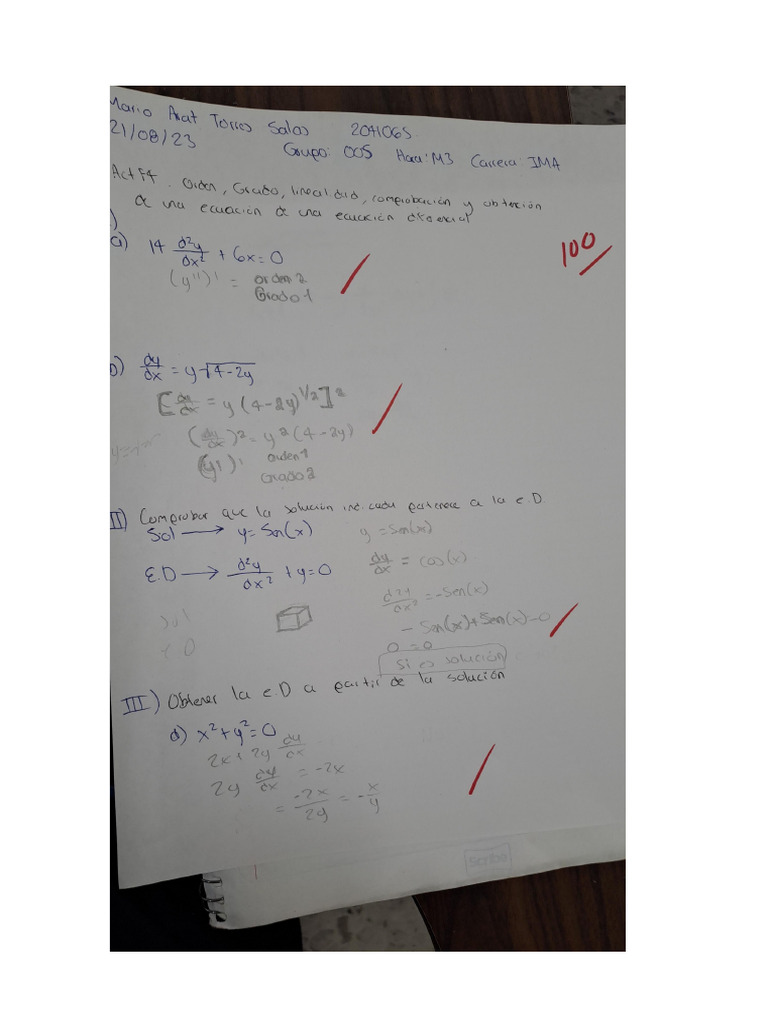 Mario Arat Torres Salas 2041065
21/08/23 Grupo: 005 Hora: M3 Carrera: IMA
Act #4. Orden, Grado, linealidad, comprobación y obtención
de una ecuación de una ecuación diferencial
)
a) 14 d²y/dx² + 6x = 0
100
(y'')' = Orden 2
Grado 1
b) dy/dx = y√4-2y
[dy/dx = y(4-2y)^1/2]²
(dy/dx)² = y²(4-2y)
(y')' Orden 1
Grado 2
II) Comprobar que la solución indicada pertenece a la e.D.
Sol → y = Sen(x) y = Sen(x)
dy/dx = cos(x)
E.D → d²y/dx² + y = 0
d²y/dx² = -Sen(x)
Sol
- Sen(x) + Sen(x) = 0
e D
0 = 0
Si es solución
III) Obtener la e.D a partir de la solución
d) x² + y² = 0
2x + 2y dy/dx
2y dy/dx = -2x
= -2x/2y = -x/y
Scribe